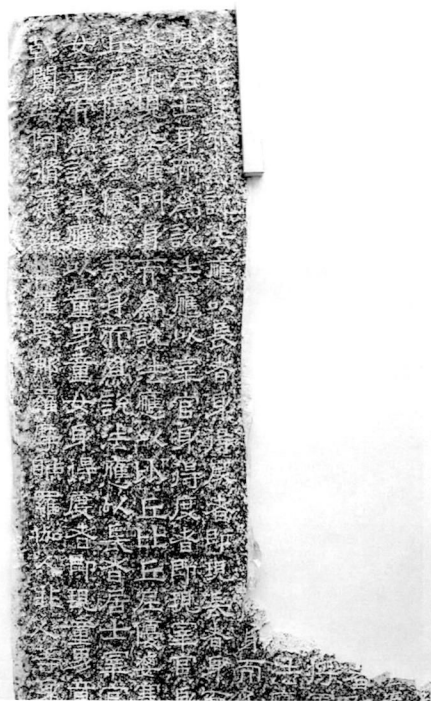 身而為說法應以長者身得度者即現長者身
現居士身而為說法應以宰官身得度者即現宰官
者即現婆羅門身而為說法應以比丘比丘尼優婆
丘尼優婆塞優婆夷身而為說法應以長者居士宰官
女身而為說法應以童男童女身得度者即現童男
乾闥婆阿脩羅迦樓羅緊那羅摩睺羅伽人非人等